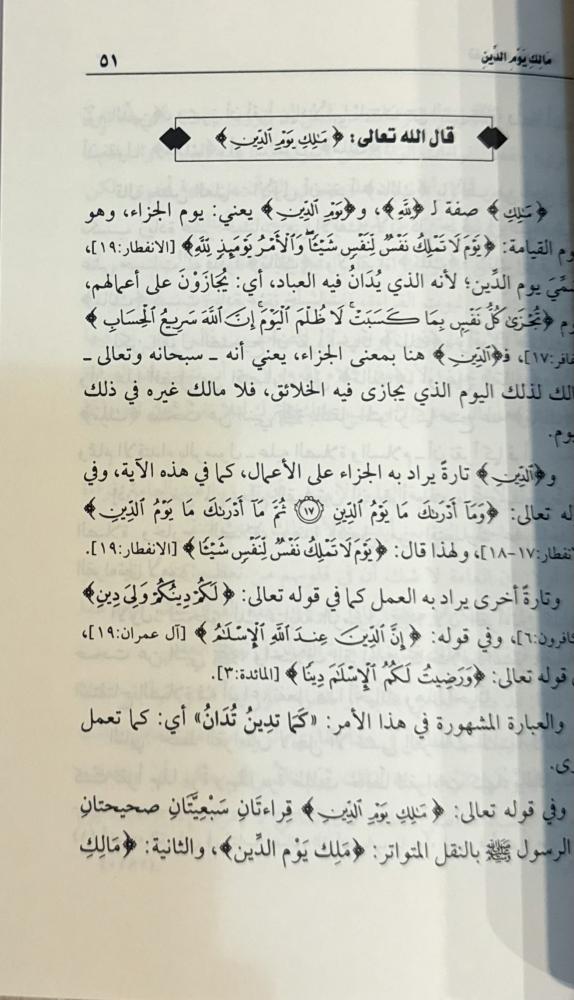 مَالِكِ يَوْمِ الدِّينِ ٥١
قال الله تعالى: ﴿ مَٰلِكِ يَوْمِ ٱلدِّينِ ﴾
﴿ مَٰلِكِ ﴾ صفة لـ ﴿لِلَّهِ﴾، و﴿يَوْمِ ٱلدِّينِ﴾ يعني: يوم الجزاء، وهو
القيامة: ﴿يَوْمَ لَا تَمْلِكُ نَفْسٌ لِّنَفْسٍ شَيْـًٔا وَٱلْأَمْرُ يَوْمَئِذٍ لِّلَّهِ﴾ [الانفطار:١٩]،
يوم الدِّين؛ لأنه الذي يُدَانُ فيه العباد، أي: يُجَازَوْنَ على أعمالهم،
﴿ تُجْزَىٰ كُلُّ نَفْسٍۭ بِمَا كَسَبَتْ ۚ لَا ظُلْمَ ٱلْيَوْمَ ۚ إِنَّ ٱللَّهَ سَرِيعُ ٱلْحِسَابِ ﴾
١٧]، فـ﴿ٱلدِّينِ﴾ هنا بمعنى الجزاء، يعني أنه ـ سبحانه وتعالى ـ
لذلك اليوم الذي يجازى فيه الخلائق، فلا مالك غيره في ذلك
و﴿ٱلدِّينِ﴾ تارةً يراد به الجزاء على الأعمال، كما في هذه الآية، وفي
تعالى: ﴿وَمَآ أَدْرَىٰكَ مَا يَوْمُ ٱلدِّينِ ۝١٧ ثُمَّ مَآ أَدْرَىٰكَ مَا يَوْمُ ٱلدِّينِ﴾
١٧-١٨]، ولهذا قال: ﴿يَوْمَ لَا تَمْلِكُ نَفْسٌ لِّنَفْسٍ شَيْـًٔا﴾ [الانفطار:١٩].
وتارةً أخرى يراد به العمل كما في قوله تعالى: ﴿لَكُمْ دِينُكُمْ وَلِىَ دِينِ﴾
٦]، وفي قوله: ﴿إِنَّ ٱلدِّينَ عِندَ ٱللَّهِ ٱلْإِسْلَٰمُ﴾ [آل عمران:١٩]،
قوله تعالى: ﴿وَرَضِيتُ لَكُمُ ٱلْإِسْلَٰمَ دِينًا﴾ [المائدة:٣].
والعبارة المشهورة في هذا الأمر: «كَمَا تَدِينُ تُدَانُ» أي: كما تعمل
وفي قوله تعالى: ﴿ مَٰلِكِ يَوْمِ ٱلدِّينِ ﴾ قِراءتَانِ سَبْعِيَّتَانِ صحيحتانِ
الرسول ﷺ بالنقل المتواتر: ﴿مَلِكِ يَوْمِ الدِّين﴾، والثانية: ﴿مَالِكِ